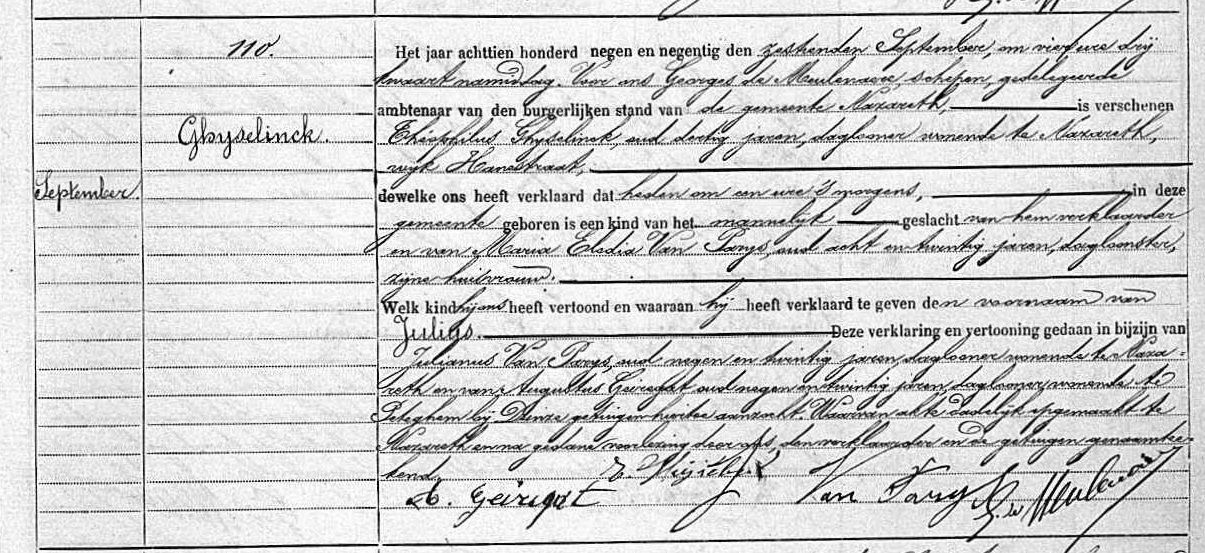 110.
Ghyselinck.
September.
Het jaar achttien honderd negen en negentig den zestienden September, om vier ure drij
kwaart namiddag. Voor ons Georges de Meulenaere, schepen, gedelegeerde
ambtenaar van den burgerlijken stand van de gemeente Nazareth, is verschenen
Theophilus Ghyselinck, oud dertig jaren, daglooner wonende te Nazareth,
wijk Hanestraat,
dewelke ons heeft verklaard dat heden om een ure 's morgens, in deze
gemeente geboren is een kind van het mannelijk geslacht van hem verklaarder
en van Maria Elodia Van Parys, oud acht en twintig jaren, dagloonster,
zijne huisvrouw.
Welk kind hij ons heeft vertoond en waaraan hij heeft verklaard te geven den voornaam van
Julius. Deze verklaring en vertooning gedaan in bijzijn van
Julianus Van Parys, oud negen en twintig jaren, daglooner wonende te Naza-
reth en van Augustus oud negen en twintig jaren, daglooner, wonende te
Peteghem bij Deinze getuigen hiertoe aanzocht. Waarvan akte dadelijk opgemaakt te
Nazareth en na gedane voorlezing door ons, den verklaarder en de getuigen genaamtee-
kend.
Van Parys